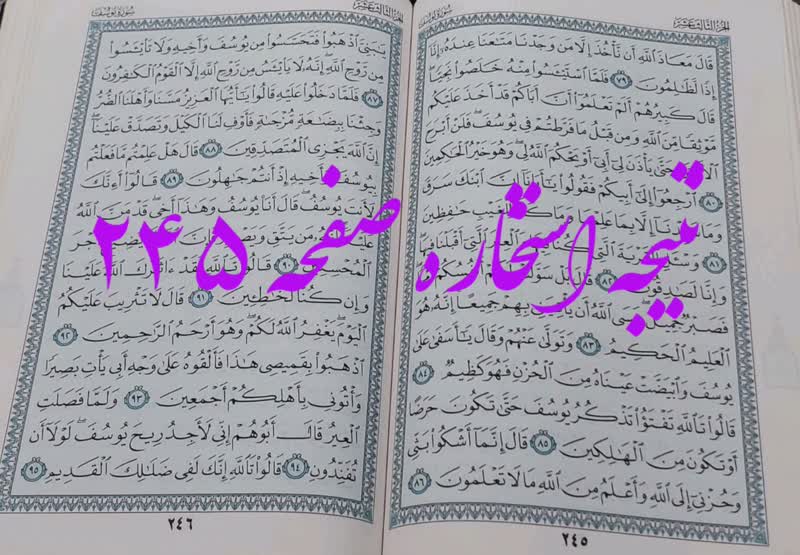 الجزء الثالث عشر
سورة يوسف
قَالَ مَعَاذَ ٱللَّهِ أَن نَّأْخُذَ إِلَّا مَن وَجَدْنَا مَتَٰعَنَا عِندَهُۥٓ إِنَّآ
إِذًا لَّظَٰلِمُونَ ٧٩ فَلَمَّا ٱسْتَيْـَٔسُوا۟ مِنْهُ خَلَصُوا۟ نَجِيًّا
قَالَ كَبِيرُهُمْ أَلَمْ تَعْلَمُوٓا۟ أَنَّ أَبَاكُمْ قَدْ أَخَذَ عَلَيْكُم
مَّوْثِقًا مِّنَ ٱللَّهِ وَمِن قَبْلُ مَا فَرَّطتُمْ فِى يُوسُفَ فَلَنْ أَبْرَحَ
حَتَّىٰ يَأْذَنَ لِىٓ أَبِىٓ أَوْ يَحْكُمَ ٱللَّهُ لِى وَهُوَ خَيْرُ ٱلْحَٰكِمِينَ
٨٠ ٱرْجِعُوٓا۟ إِلَىٰٓ أَبِيكُمْ فَقُولُوا۟ يَٰٓأَبَانَآ إِنَّ ٱبْنَكَ سَرَقَ
وَمَا شَهِدْنَآ إِلَّا بِمَا عَلِمْنَا وَمَا كُنَّا لِلْغَيْبِ حَٰفِظِينَ
٨١ وَسْـَٔلِ ٱلْقَرْيَةَ ٱلَّتِى كُنَّا فِيهَا وَٱلْعِيرَ ٱلَّتِىٓ أَقْبَلْنَا فِيهَا
وَإِنَّا لَصَٰدِقُونَ ٨٢ قَالَ بَلْ سَوَّلَتْ لَكُمْ أَنفُسُكُمْ أَمْرًا
فَصَبْرٌ جَمِيلٌ عَسَى ٱللَّهُ أَن يَأْتِيَنِى بِهِمْ جَمِيعًا إِنَّهُۥ هُوَ
ٱلْعَلِيمُ ٱلْحَكِيمُ ٨٣ وَتَوَلَّىٰ عَنْهُمْ وَقَالَ يَٰٓأَسَفَىٰ عَلَىٰ
يُوسُفَ وَٱبْيَضَّتْ عَيْنَاهُ مِنَ ٱلْحُزْنِ فَهُوَ كَظِيمٌ ٨٤
قَالُوا۟ تَٱللَّهِ تَفْتَؤُا۟ تَذْكُرُ يُوسُفَ حَتَّىٰ تَكُونَ حَرَضًا
أَوْ تَكُونَ مِنَ ٱلْهَٰلِكِينَ ٨٥ قَالَ إِنَّمَآ أَشْكُوا۟ بَثِّى
وَحُزْنِىٓ إِلَى ٱللَّهِ وَأَعْلَمُ مِنَ ٱللَّهِ مَا لَا تَعْلَمُونَ ٨٦
٢٤٥
الجزء الثالث عشر
سورة يوسف
يَٰبَنِىَّ ٱذْهَبُوا۟ فَتَحَسَّسُوا۟ مِن يُوسُفَ وَأَخِيهِ وَلَا تَا۟يْـَٔسُوا۟
مِن رَّوْحِ ٱللَّهِ إِنَّهُۥ لَا يَا۟يْـَٔسُ مِن رَّوْحِ ٱللَّهِ إِلَّا ٱلْقَوْمُ ٱلْكَٰفِرُونَ
٨٧ فَلَمَّا دَخَلُوا۟ عَلَيْهِ قَالُوا۟ يَٰٓأَيُّهَا ٱلْعَزِيزُ مَسَّنَا وَأَهْلَنَا ٱلضُّرُّ
وَجِئْنَا بِبِضَٰعَةٍ مُّزْجَىٰةٍ فَأَوْفِ لَنَا ٱلْكَيْلَ وَتَصَدَّقْ عَلَيْنَآ
إِنَّ ٱللَّهَ يَجْزِى ٱلْمُتَصَدِّقِينَ ٨٨ قَالَ هَلْ عَلِمْتُم مَّا فَعَلْتُم
بِيُوسُفَ وَأَخِيهِ إِذْ أَنتُمْ جَٰهِلُونَ ٨٩ قَالُوٓا۟ أَءِنَّكَ
لَأَنتَ يُوسُفُ قَالَ أَنَا۠ يُوسُفُ وَهَٰذَآ أَخِى قَدْ مَنَّ ٱللَّهُ
عَلَيْنَآ إِنَّهُۥ مَن يَتَّقِ وَيَصْبِرْ فَإِنَّ ٱللَّهَ لَا يُضِيعُ أَجْرَ
ٱلْمُحْسِنِينَ ٩٠ قَالُوا۟ تَٱللَّهِ لَقَدْ ءَاثَرَكَ ٱللَّهُ عَلَيْنَا
وَإِن كُنَّا لَخَٰطِـِٔينَ ٩١ قَالَ لَا تَثْرِيبَ عَلَيْكُمُ
ٱلْيَوْمَ يَغْفِرُ ٱللَّهُ لَكُمْ وَهُوَ أَرْحَمُ ٱلرَّٰحِمِينَ ٩٢
ٱذْهَبُوا۟ بِقَمِيصِى هَٰذَا فَأَلْقُوهُ عَلَىٰ وَجْهِ أَبِى يَأْتِ بَصِيرًا
وَأْتُونِى بِأَهْلِكُمْ أَجْمَعِينَ ٩٣ وَلَمَّا فَصَلَتِ
ٱلْعِيرُ قَالَ أَبُوهُمْ إِنِّى لَأَجِدُ رِيحَ يُوسُفَ لَوْلَآ أَن
تُفَنِّدُونِ ٩٤ قَالُوا۟ تَٱللَّهِ إِنَّكَ لَفِى ضَلَٰلِكَ ٱلْقَدِيمِ ٩٥
٢٤٦
نتیجه استخاره صفحه ۲۴۵